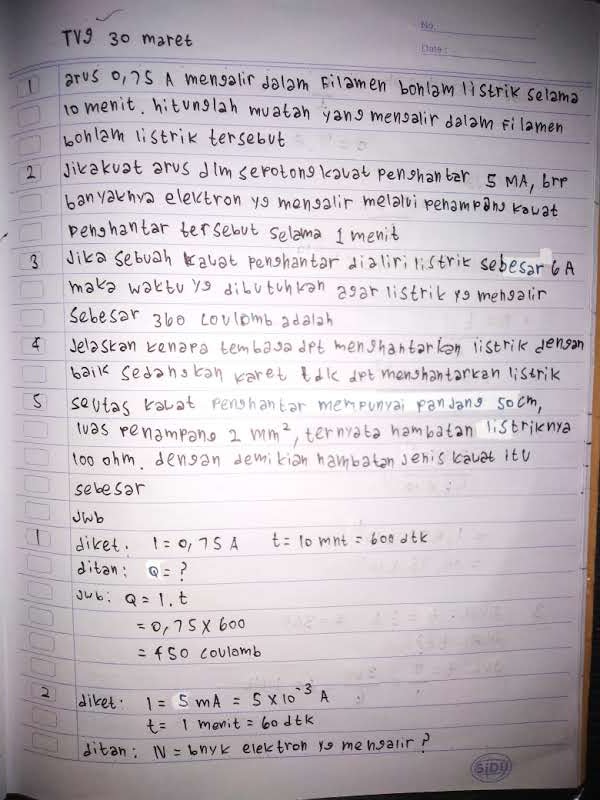 No.
Date:
TVg 30 maret
1 arus 0,75 A mengalir dalam Filamen bohlam listrik selama
10 menit. hitunglah muatan yang mengalir dalam Filamen
bohlam listrik tersebut
2 Jika kuat arus dlm sepotong kawat penghantar 5 MA, brp
banyaknya elektron yg mengalir melalui penampang kawat
penghantar tersebut selama 1 menit
3 Jika sebuah kawat penghantar dialiri listrik sebesar 6 A
maka waktu yg dibutuhkan agar listrik yg mengalir
sebesar 360 coulomb adalah
4 Jelaskan kenapa tembaga dpt menghantarkan listrik dengan
baik sedangkan karet tdk dpt menghantarkan listrik
5 seutas kawat penghantar mempunyai panjang 50 cm,
luas penampang 2 mm², ternyata hambatan listriknya
100 ohm. dengan demikian hambatan jenis kawat itu
sebesar
Jwb
1 diket: I = 0,75 A t = 10 mnt = 600 dtk
ditan: Q = ?
Jwb: Q = I.t
= 0,75 x 600
= 450 coulamb
2 diket: I = 5 mA = 5 x 10⁻³ A
t = 1 menit = 60 dtk
ditan: N = bnyk elektron yg mengalir?
SiDU